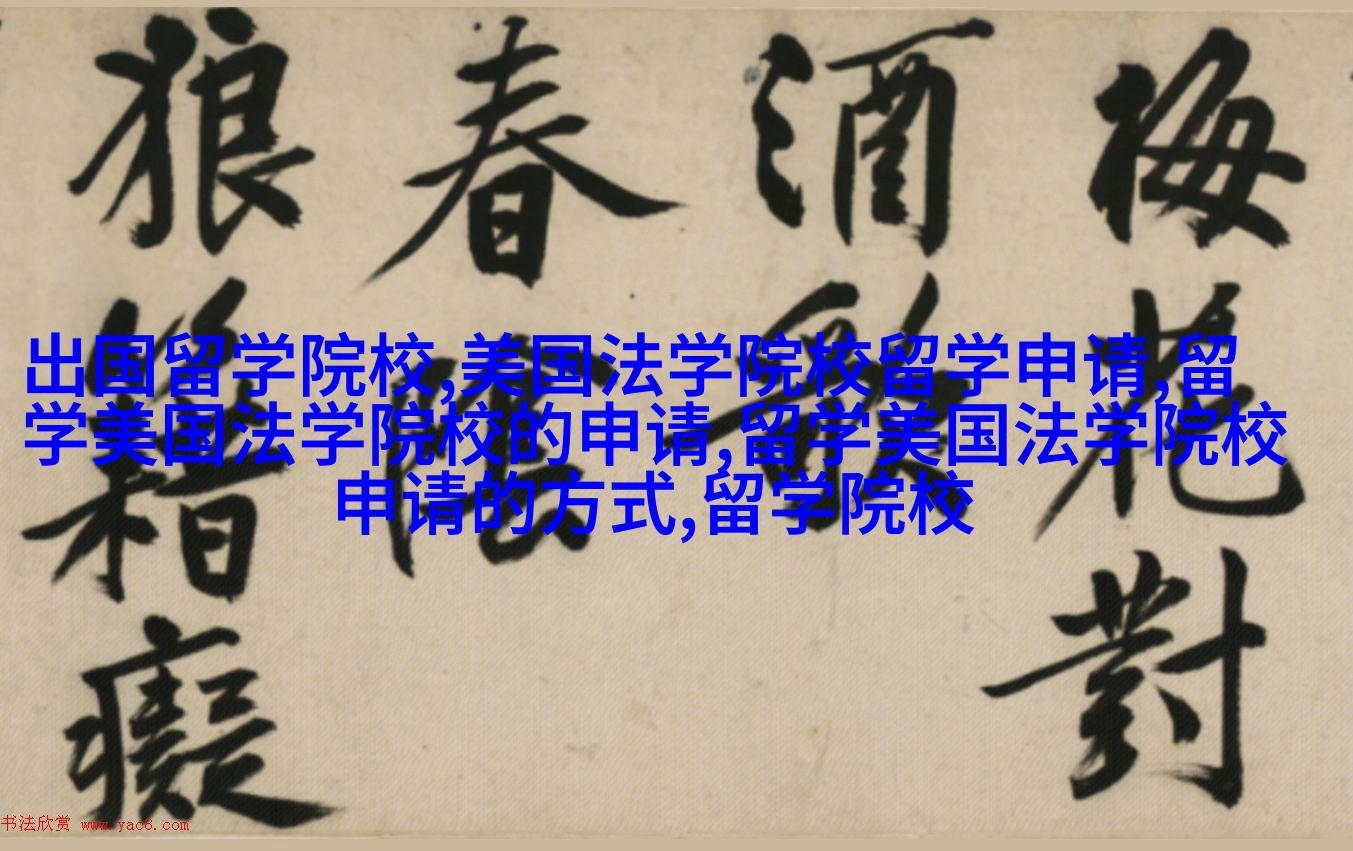 梅花對
酒
春
狼籍癡
出国留学院校,美国法学院校留学申请,留
学美国法学院校的申请,留学美国法学院校
申请的方式,留学院校
书法欣赏 www.yac8.com